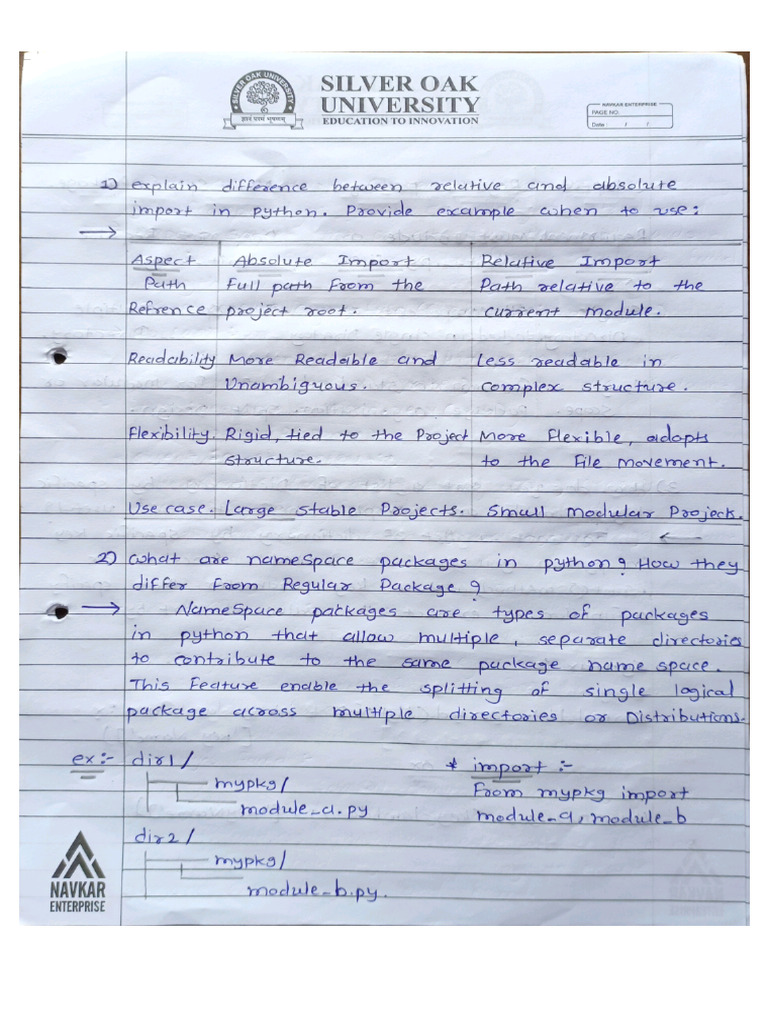 SILVER OAK UNIVERSITY
ज्ञानं परमं भूषणम्
SILVER OAK
UNIVERSITY
EDUCATION TO INNOVATION
NAVKAR ENTERPRISE
PAGE NO.
Date : / /
1) explain difference between relative and absolute
import in python. Provide example when to use:
→
Aspect Absolute Import Relative Import
Path Full path from the Path relative to the
Refrence project root. current module.
Readability More Readable and Less readable in
Unambiguous. complex structure.
Flexibility. Rigid, tied to the Project More Flexible, adapts
structure. to the File movement.
Use case. Large stable Projects. Small modular Projects.
←
2) What are nameSpace packages in python? How they
differ from Regular Package?
→ NameSpace packages are types of packages
in python that allow multiple, separate directories
to contribute to the same package name space.
This Feature enable the splitting of single logical
package across multiple directories or Distributions.
ex:- dir1/ * import :-
mypkg/ From mypkg import
module_a.py module_a, module_b
dir2/
mypkg/
module_b.py.
NAVKAR
ENTERPRISE